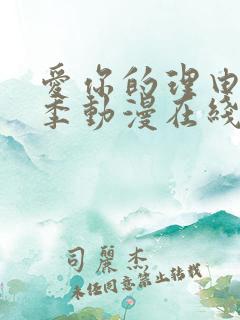 愛你的理由
季動漫在綫
司麗杰
未经同意禁止转载